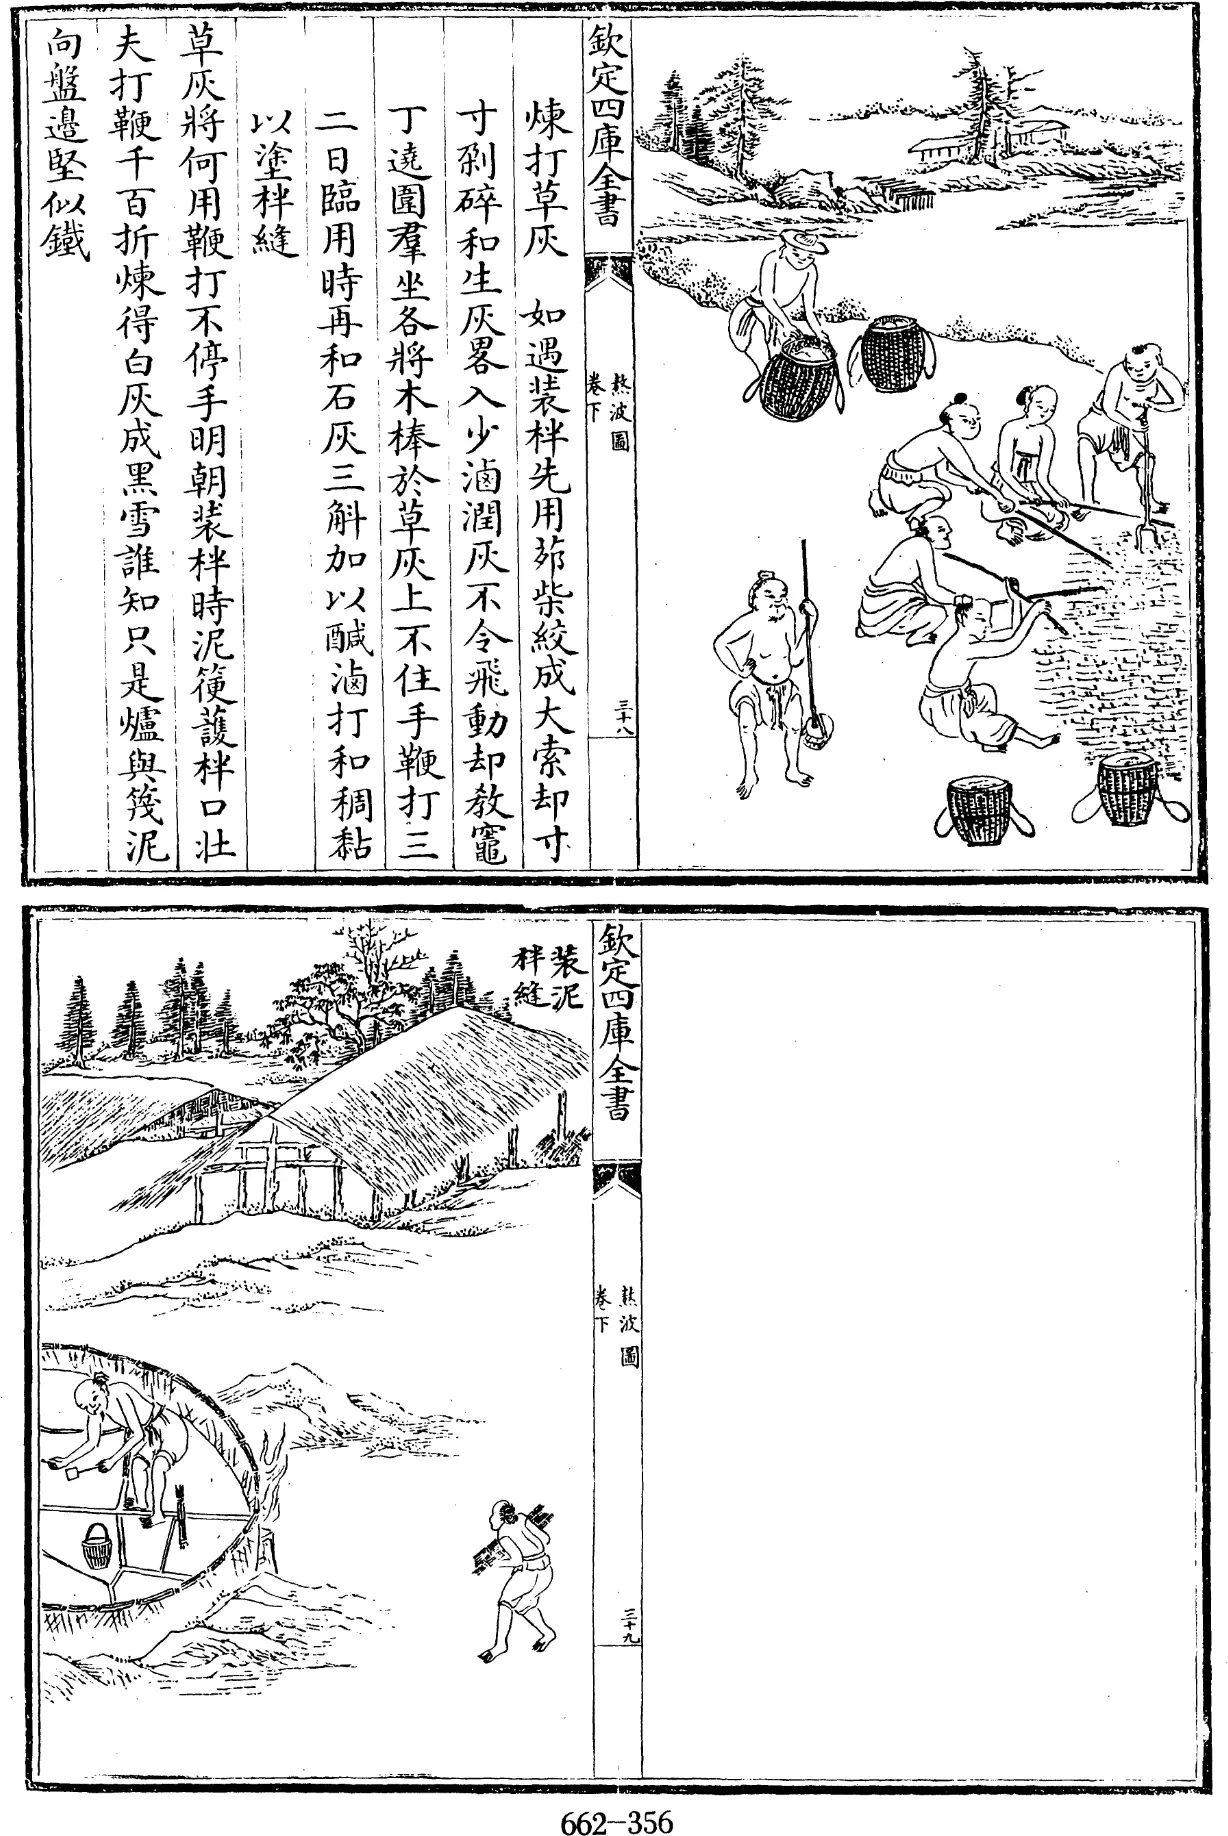 欽定四庫全書
熬波圖
卷下
三十八
煉打草灰　如遇裝柈先用茆柴絞成大索却寸
寸剁碎和生灰畧入少滷潤灰不令飛動却教竈
丁遶圍羣坐各將木棒於草灰上不住手鞭打三
二日臨用時再和石灰三斛加以醎滷打和稠黏
以塗柈縫
草灰將何用鞭打不停手明朝裝柈時泥籩護柈口壯
夫打鞭千百折煉得白灰成黑雪誰知只是爐與篾泥
向盤邊堅似鐵
欽定四庫全書
熬波圖
卷下
三十九
裝泥
柈縫
662-356